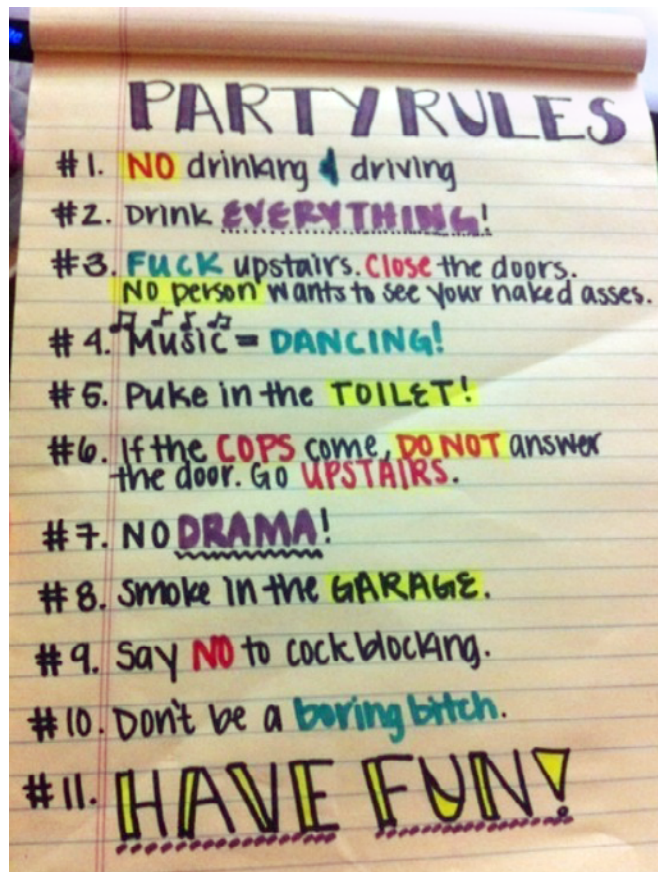 PARTY RULES
#1. NO drinking & driving
#2. Drink EVERYTHING!
#3. FUCK upstairs. Close the doors.
NO person wants to see your naked asses.
#4. Music = DANCING!
#5. Puke in the TOILET!
#6. If the COPS come, DO NOT answer
the door. Go UPSTAIRS.
#7. NO DRAMA!
#8. Smoke in the GARAGE.
#9. Say NO to cockblocking.
#10. Don't be a boring bitch.
#11. HAVE FUN!